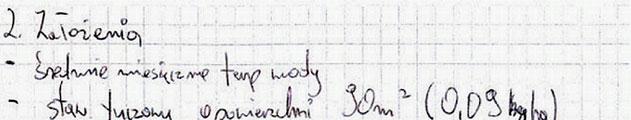 2. Założenia
- średnie miesięczne temp wody
- staw tuczowy o powierzchni 90m² (0,09 ha)